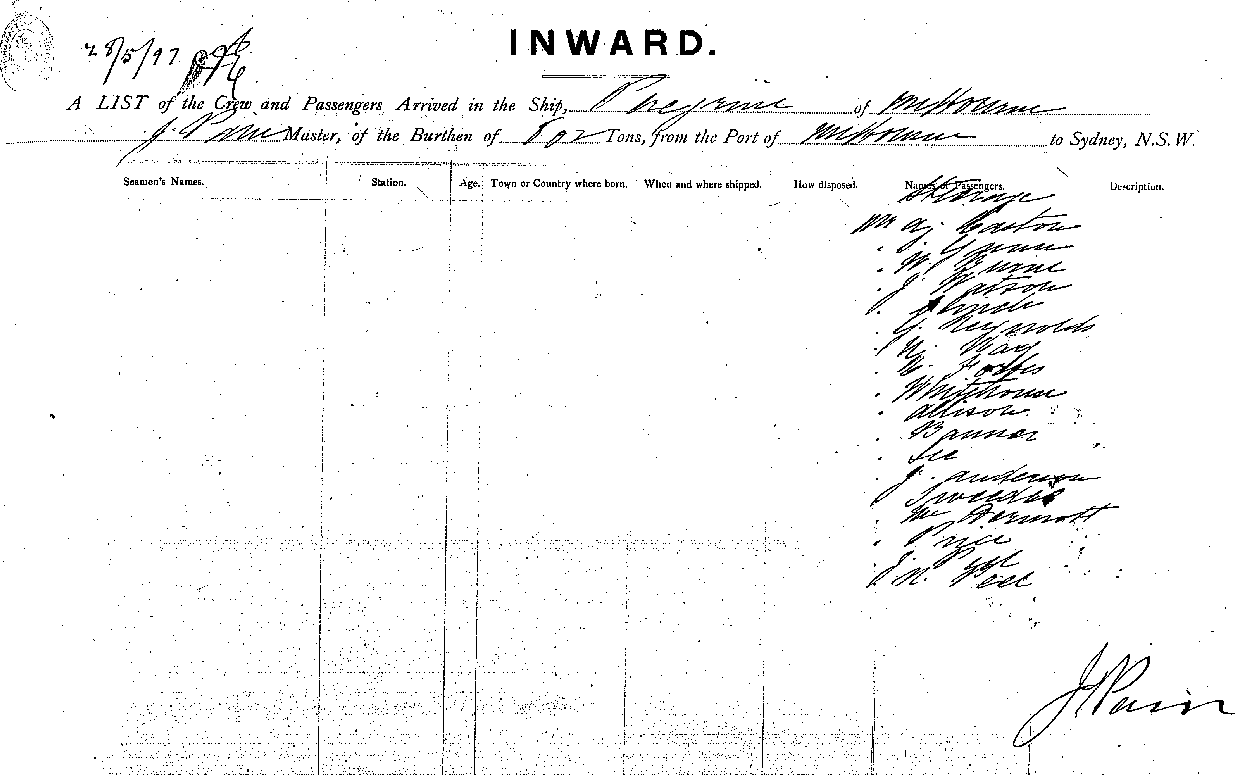 INWARD.
28/5/97
A LIST of the Crew and Passengers Arrived in the Ship, Peregrine of Melbourne
J. Pain Master, of the Burthen of 802 Tons, from the Port of Melbourne to Sydney, N.S.W.
Seamen's Names. Station. Age. Town or Country where born. When and where shipped. How disposed. Names of Passengers. Description.
Steerage
Mr A. Easton
" J. Gunn
" W. Burne
" J. Watson
" G. Reynolds
" W. Way
" W. Forbes
" Whitehouse
" Allison
" Bannor
" Lee
" J. Anderson
" McDermott
" Price
J Pain